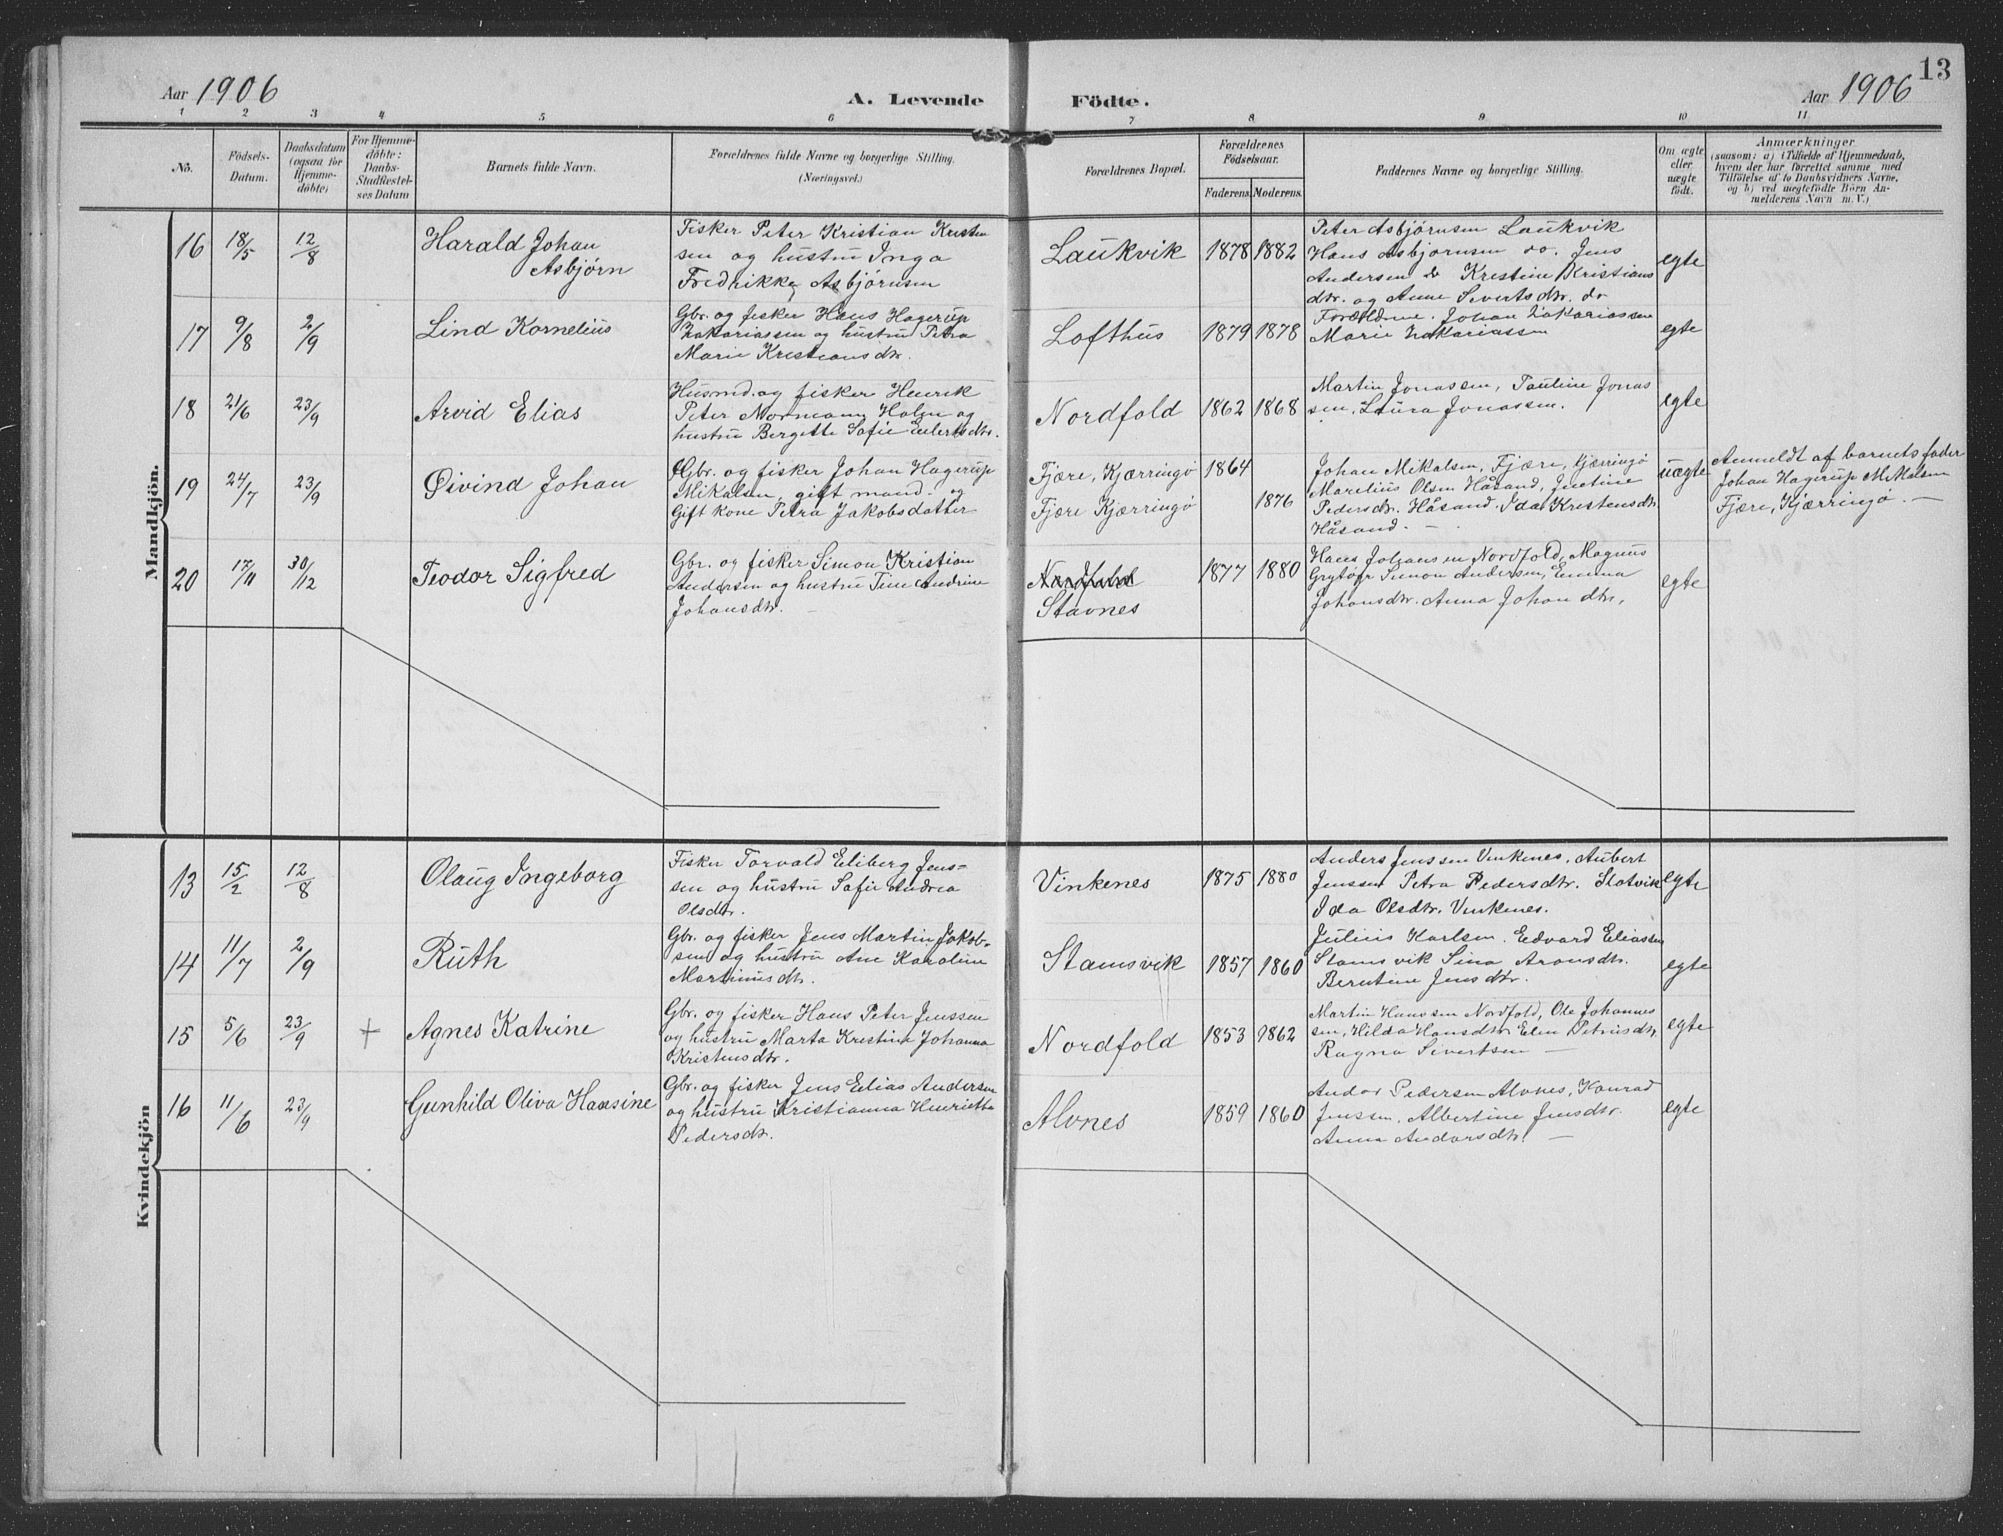 Aar 1906
A. Levende
Födte.
Aar 1906
13
1 2 3 4 5 6 7 8 9 10 11
No.
Födsels-
Datum.
Daabsdatum
(ogsaa for
Hjemme-
döbte)
For Hjemme-
döbte:
Daabs-
Stadfæstel-
ses Datum
Barnets fulde Navn.
Forældrenes fulde Navne og borgerlige Stilling.
(Næringsvei.)
Forældrenes Bopæl.
Forældrenes
Födselsaar.
Faderens. Moderens.
Faddernes Navne og borgerlige Stilling.
Om ægte
eller
uægte
födt.
Anmærkninger
(saasom: a) i Tilfælde af Hjemmedaab,
hvem der har forrettet samme med
Tilföielse af to Daabsvidners Navne,
og b) ved uægtefödte Börn An-
melderens Navn m. V.)
Mandkjön.
16 18/5 12/8
Harald Johan
Asbjörn
Fisker Peter Kristian Kristen
sen og hustru Inga
Fredrikke Asbjörnsen
Laukvik 1878 1882
Peter Asbjörnsen Laukvik
Hans Asbjörnsen do. Jens
Andersen do Krestine Kristians
dtr. og Anne Sivertsdtr. do
egte
17 9/8 2/9
Lind Kornelius
Gbr. og fisker Hans Hagerup
Zakariassen og hustru Petra
Marie Kristiansdtr.
Lofthus 1879 1878
Forældrene. Johan Zakariassen
Marie Zakariassen
egte
18 21/6 23/9
Arvid Elias
Husmd. og fisker Henrik
Peter Normann Holen og
hustru Bergette Sofie Eilertsdtr.
Nordfold 1862 1868
Martin Jonassen, Pauline Jonas
sen, Laura Jonassen.
egte
19 24/7 23/9
Öivind Johan
Gbr. og fisker Johan Hagerup
Mikalsen, gift mand. og
Gift kone Petra Jakobsdatter
Fjære, Kjærringö 1864
Fjære Kjærringö 1876
Johan Mikalsen, Fjære, Kjærringö
Marelius Olsen Håsand, Justine
Pedersdtr. Håsand. Ida Kristensdtr.
Håsand. —
uægte
Anmeldt af barnets fader
Johan Hagerup Mikalsen
Fjære, Kjærringö. —
20 17/11 30/12
Teodor Sigfred
Gbr. og fisker Simon Kristian
Andersen og hustru Tine Andrine
Johansdtr. —
Nordfold
Stavnes
1877 1880
Hans Johansen Nordfold, Magnus
Grytöir Simon Andersen, Emma
Johansdtr. Anna Johan dtr.
egte
Kvindekjön
13 15/2 12/8
Olaug Ingeborg
Fisker Torvald Eliberg Jens-
sen og hustru Sofie Andrea
Olsdtr.
Vinkenes 1875 1880
Anders Jenssen Vinkenes, Aubert
Jenssen Petra Pedersdtr. Slotvik
Ida Olsdtr. Vinkenes.
egte
14 11/7 2/9
Ruth
Gbr. og fisker Jens Martin Jakob-
sen og hustru Ane Karoline
Martinusdtr.
Stamsvik 1857 1860
Julius Karlsen. Edvard Eliassen
Stamsvik Sina Aronsdtr.
Berntine Jensdtr.
egte
15 5/6 23/9 +
Agnes Katrine
Gbr. og fisker Hans Peter Jenssen
og hustru Marta Kristine Johanna
Kristensdtr.
Nordfold 1853 1862
Martin Hanssen Nordfold, Ole Johannes
sen, Hilda Hansdtr. Elen Petrusdtr.
Ragna Sivertsen —
egte
16 11/6 23/9
Gunhild Oliva Hansine
Gbr. og fisker Jens Elias Andersen
og hustru Kristianna Henriette
Pedersdtr.
Alvnes 1859 1860
Andor Pedersen Alvnes, Konrad
Jenssen, Albertine Jensdtr.
Anna Andorsdtr. —
egte